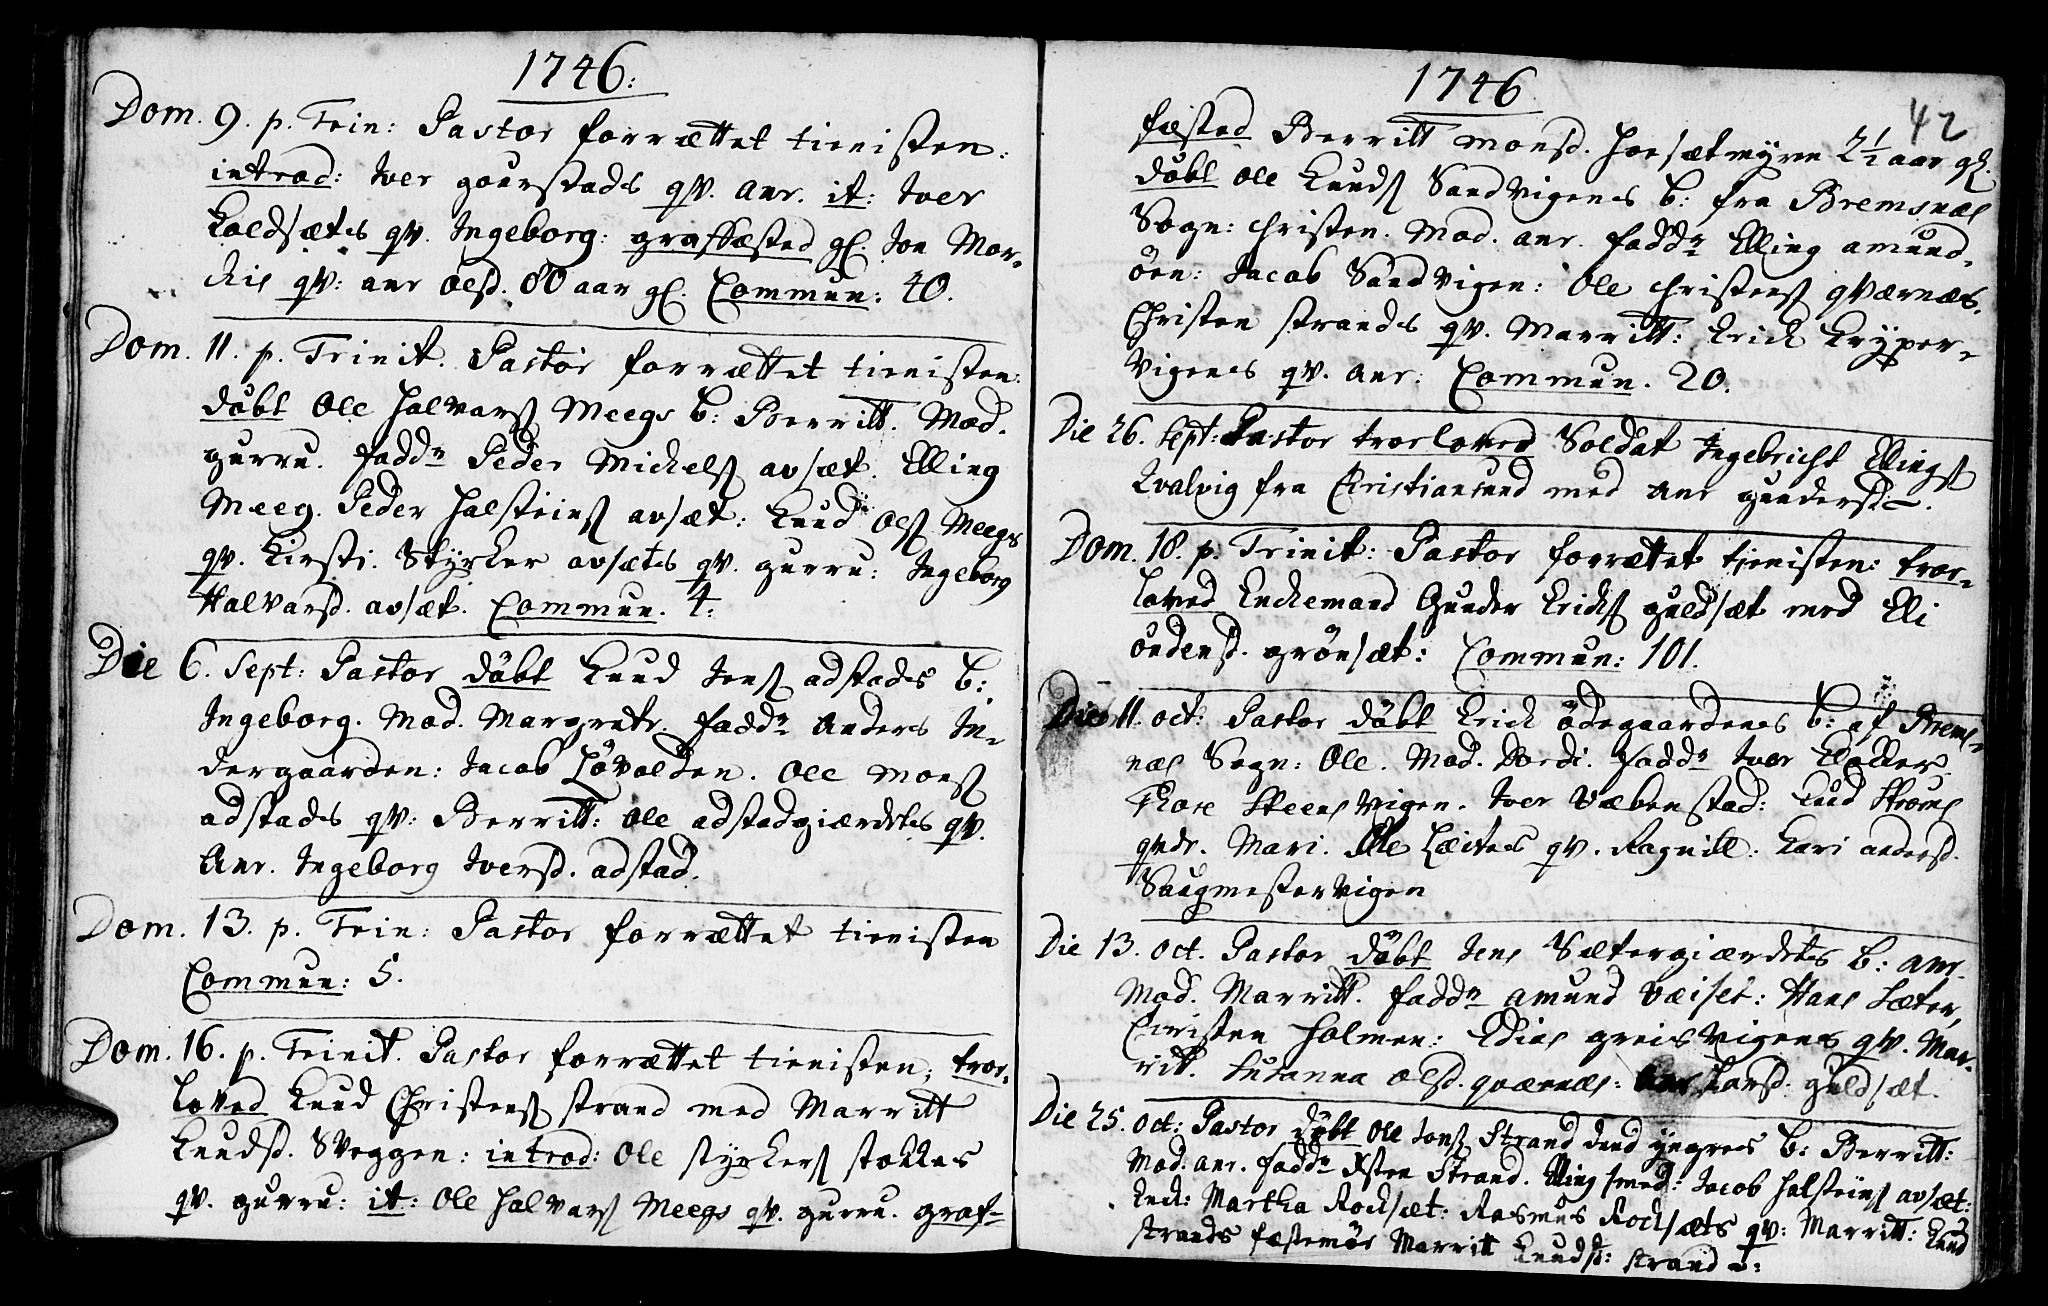 1746:
Dom. 9. p. Trin: Pastor forrættet tienisten:
introd: Iver gourstads qv. anr. it: Iver
Koldsætes qv. Ingeborg: graffæsted gl. Jon Mor-
chis qv: anr Olsd. 80 aar gl. Commun: 40.
Dom. 11. p. Trinit. Pastor forrættet tienisten:
döbt Ole Halvars Meegs b: Berritt. Mod.
gurru. fadd Peder Michels avsæt. Elling
Meeg. Peder Halsteins avsæt: Knud Ols Meegs
qv. Kirsti. Styrker avsætes qv. gurru: Ingeborg
Halvarsd. avsæt. Commun. 4:
Die 6. Sept: Pastor döbt Knud Jens adstads b:
Ingeborg. Mod. Margrete. fadd Anders In-
dergaarden: Jacob Lövolden. Ole Mons
adstads qv: Berritt: Ole adstadgiærdetes qv.
Anr. Ingeborg Iversd. adstad.
Dom. 13. p. Trin: Pastor forrættet tienisten
Commun: 5.
Dom. 16. p. Trinit. Pastor forrættet tienisten, troe-
loved Knud Christens strand med Marritt
Knudsd. Sveggen: introd: Ole styrkers stokkes
qv. gurru: it: Ole Halvars Meegs qv. gurru. graf-
1746
42
fæsted Berritt Monsd. Hoesætmyren 2 1/2 aar gl.
döbt Ole Knuds Sandvigens b: fra Bremsnæs
Sogn: Christen. Mod. anr. fadd Elling amund-
öen: Jacob Sandvigen: Ole Christens qværnæs.
Christen strands qv. Marritt: Erich Kryper-
vigens qv. anr: Commun. 20.
Die 26. Sept: Pastor troeloved Soldat Ingebricht Ellings
Kvalvig fra Christiansund med anr gundersd.
Dom. 18. p. Trinit: Pastor forrættet tienisten: troe-
loved Enchemand Gunder Erichs guldsæt med Eli
öudensd. grönsæt: Commun: 101.
Die 11. oct: Pastor döbt Erich ödegaardens b: af Brems-
næs Sogn: Ole. Mod. Dordi. fadd Iver Klocker
Thore Steensvigen. Iver Væbenstad: Knud Ströms
qvdr. Mari. Ole Læites qv. Ragnill: Kari andersd.
Saugmestervigen
Die 13. oct. Pastor döbt Jens Sætergiærdetes b: anr.
Mod. Marritt. fadd amund Væiset: Hans Sæter,
Christen Holmen: Edias greisvigens qv. Mar-
ritt. Susanna Olsd. qværnæs: Anr Larsd. guldsæt.
Die 25. oct: Pastor döbt Ole Jons Strand dend yngres b: Berritt:
Mod. anr. fadd Østen Strand. Elling smed: Jacob Halsteins avsæt:
Enk: Martha Rochsæt: Rasmus Rochsæts qv: Marritt: Knud
strands fæstemöe Marritt Knudsd: strand